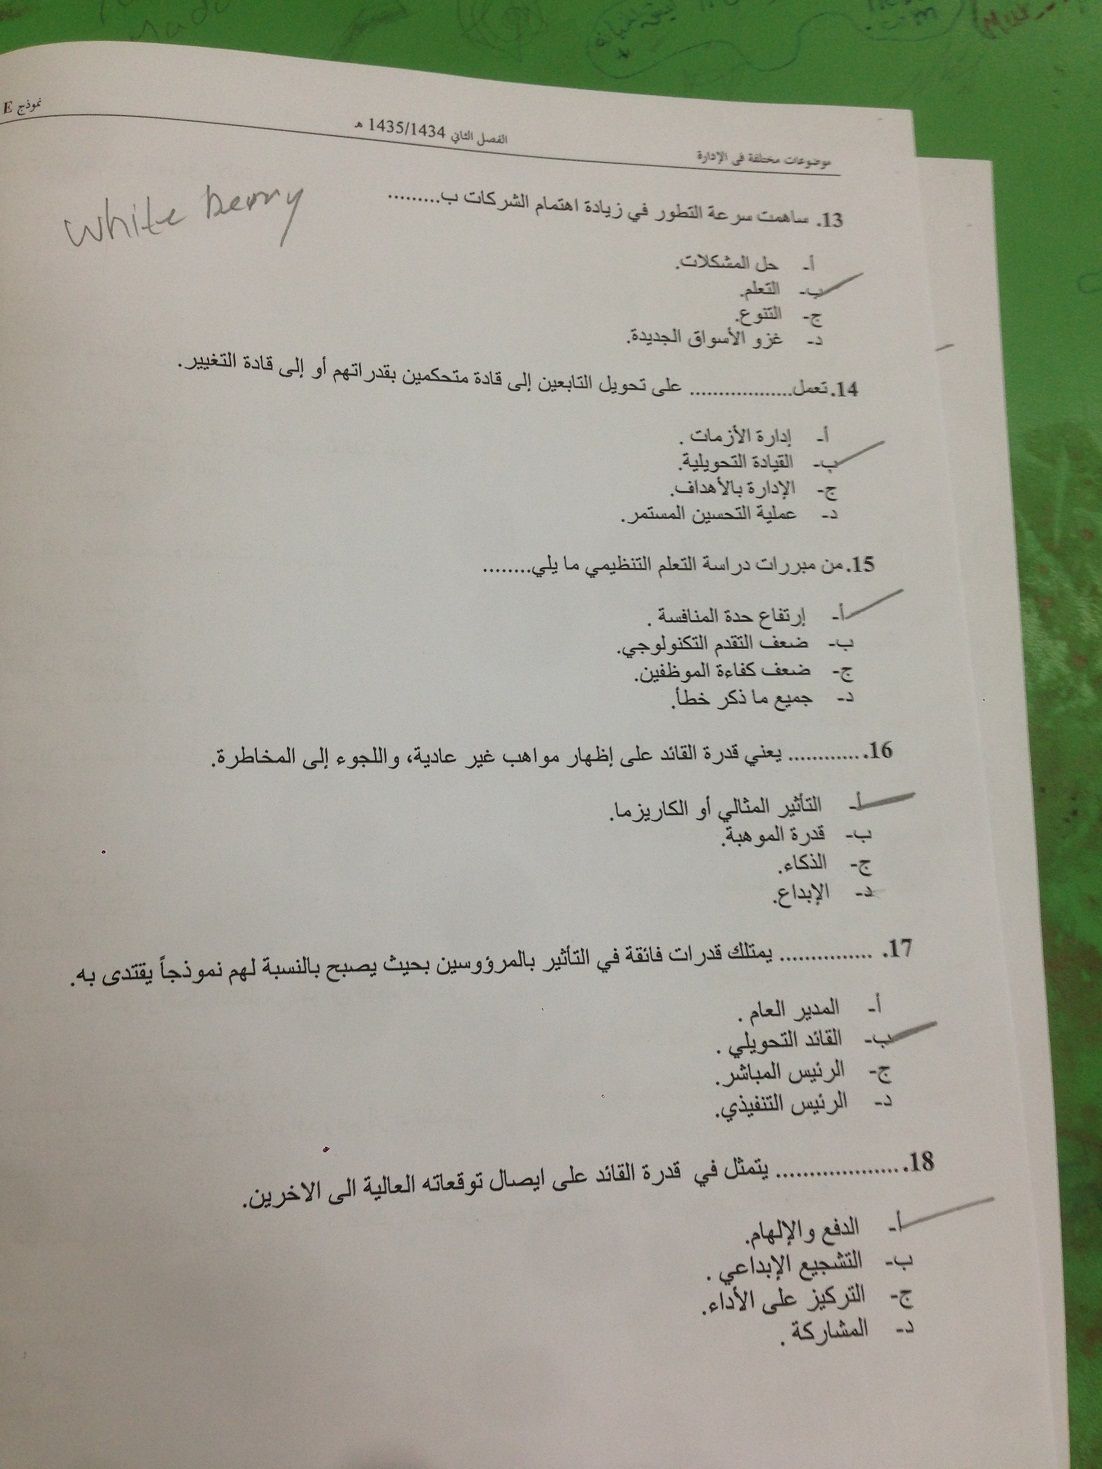 موضوعات مختلفة في الإدارة الفصل الثاني 1435/1434 هـ نموذج E
white berry
13. ساهمت سرعة التطور في زيادة اهتمام الشركات ب.........
أ- حل المشكلات.
ب- التعلم.
ج- التنوع.
د- غزو الأسواق الجديدة.
14. تعمل.................. على تحويل التابعين إلى قادة متحكمين بقدراتهم أو إلى قادة التغيير.
أ- إدارة الأزمات .
ب- القيادة التحويلية.
ج- الإدارة بالأهداف.
د- عملية التحسين المستمر.
15. من مبررات دراسة التعلم التنظيمي ما يلي........
أ- إرتفاع حدة المنافسة .
ب- ضعف التقدم التكنولوجي.
ج- ضعف كفاءة الموظفين.
د- جميع ما ذكر خطأ.
16. ............ يعني قدرة القائد على إظهار مواهب غير عادية، واللجوء إلى المخاطرة.
أ- التأثير المثالي أو الكاريزما.
ب- قدرة الموهبة.
ج- الذكاء.
د- الإبداع.
17. ............... يمتلك قدرات فائقة في التأثير بالمرؤوسين بحيث يصبح بالنسبة لهم نموذجاً يقتدى به.
أ- المدير العام .
ب- القائد التحويلي .
ج- الرئيس المباشر.
د- الرئيس التنفيذي.
18. ................... يتمثل في قدرة القائد على ايصال توقعاته العالية الى الاخرين.
أ- الدفع والإلهام.
ب- التشجيع الإبداعي .
ج- التركيز على الأداء.
د- المشاركة .